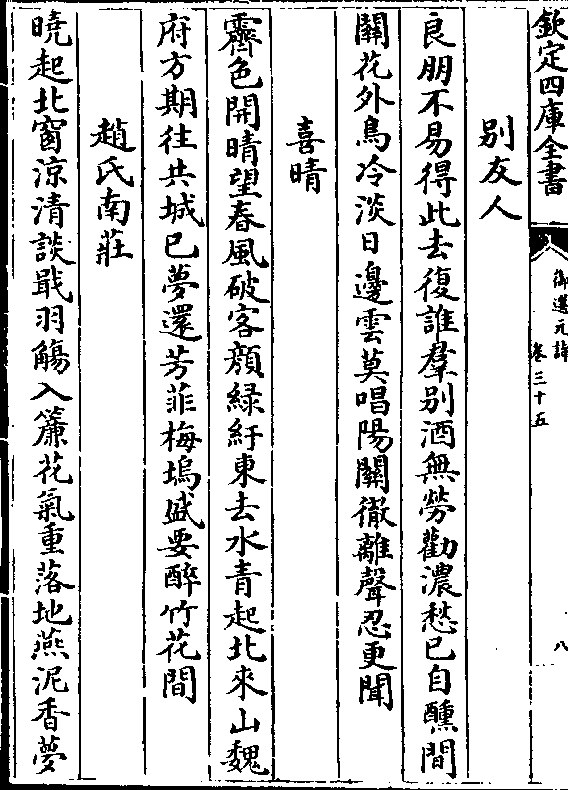 欽定四庫全書
御選元詩
卷三十五
八
别友人
良朋不易得此去復誰羣别酒無勞勸濃愁已自醺間
關花外鳥冷淡日邊雲莫唱陽關徹離聲忍更聞
喜晴
霽色開晴望春風破客顔緑紆東去水青起北來山魏
府方期往共城已夢還芳菲梅塢盛要醉竹花間
趙氏南莊
曉起北窗涼清談戢羽觴入簾花氣重落地燕泥香夢